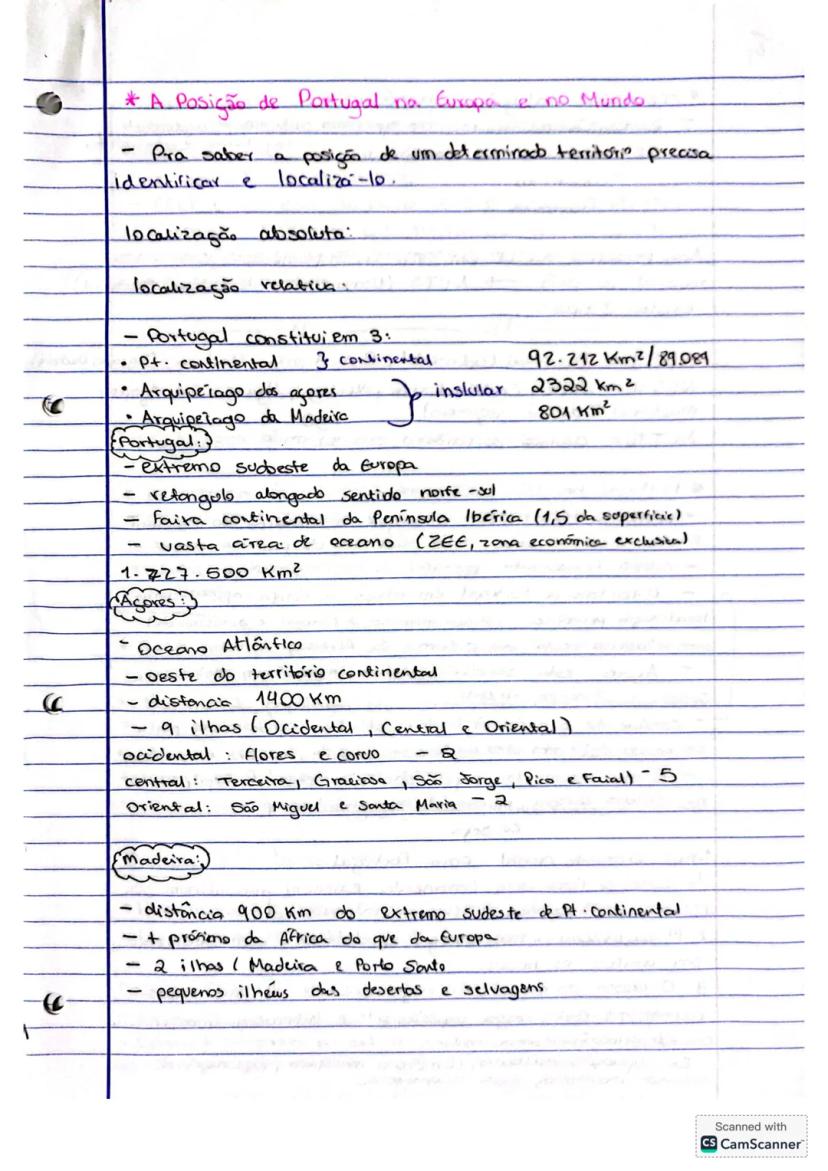 * A Posição de Portugal na Europa e no Mundo
- Pra saber a posição de um determinado território precisa
identificar e localizá-lo.
localização absoluta:
localização relativa:
- Portugal constitui em 3:
• Pt. continental } continental 92.212 Km²/89.089
• Arquipélago dos açores } inslular 2322 Km²
• Arquipélago da Madeira 801 Km²
Portugal:
- extremo sudoeste da Europa
- retangulo alongado sentido norte-sul
- Faixa continental da Península Ibérica (1,5 da superficie)
- vasta área de oceano (ZEE, zona econômica exclusiva)
1.727.500 Km²
Açores:
- Oceano Atlântico
- oeste do território continental
- distancia 1400 Km
- 9 ilhas (Ocidental, Central e Oriental)
ocidental: Flores e corvo - 2
central: Terceira, Graciosa, São Jorge, Pico e Faial) - 5
Oriental: São Miguel e Santa Maria - 2
Madeira:
- distância 900 Km do extremo sudeste de Pt. Continental
- + próximo da África do que da Europa
- 2 ilhas (Madeira e Porto Santo
- pequenos ilhéus das desertas e selvagens
Scanned with
CS CamScanner